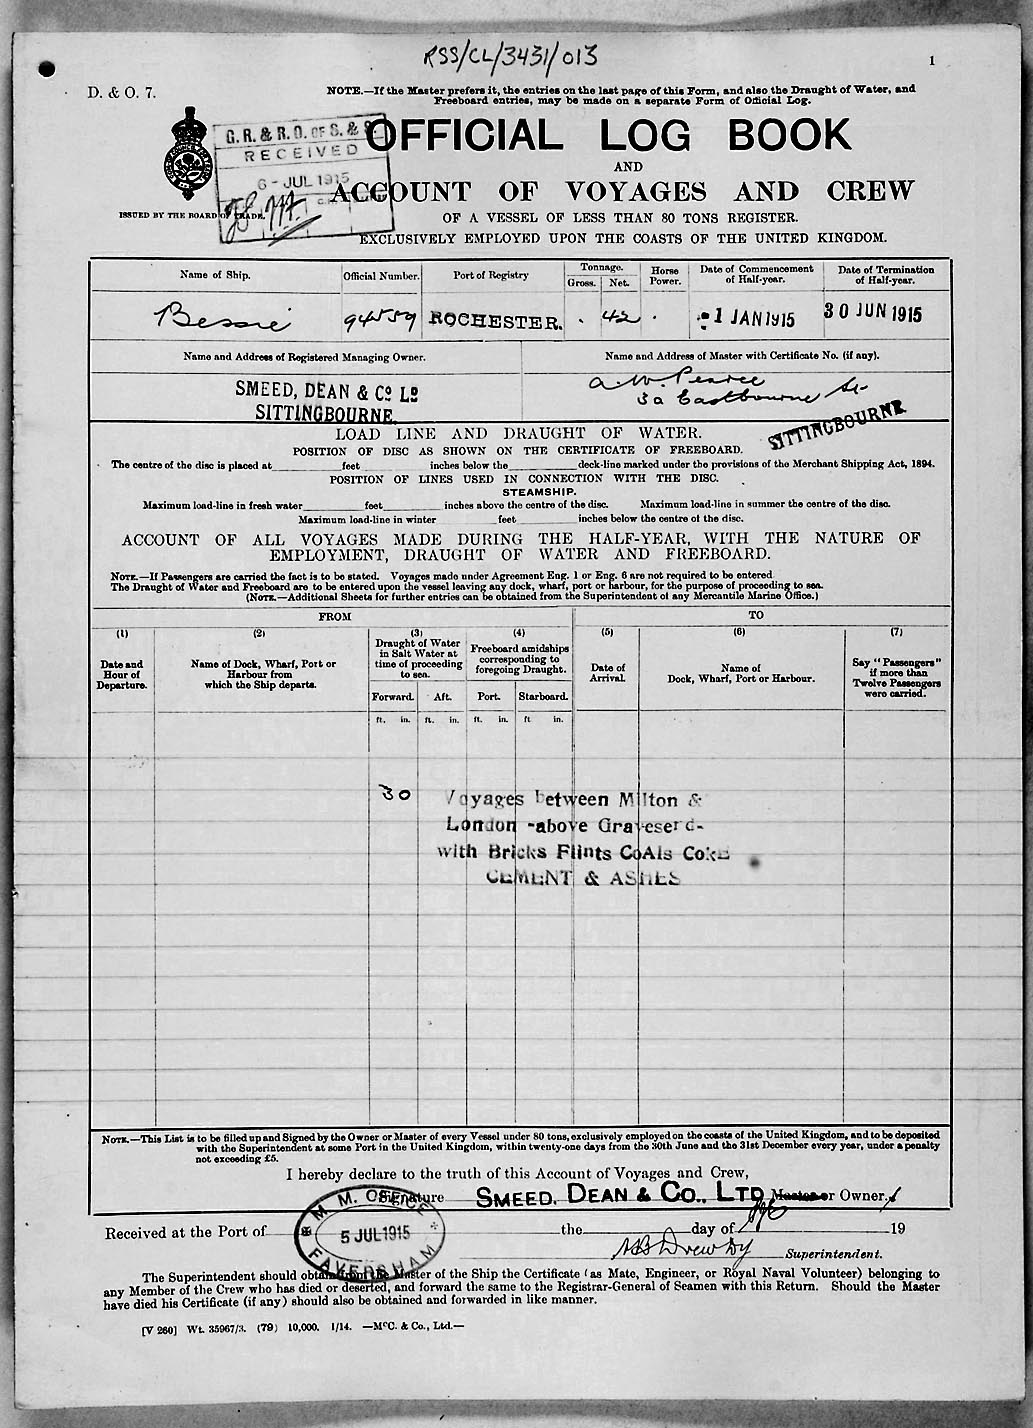 RSS/CL/3431/013
1
D. & O. 7.
NOTE.—If the Master prefers it, the entries on the last page of this Form, and also the Draught of Water, and
Freeboard entries, may be made on a separate Form of Official Log.
G. R. & R. O. OF S. & S.
RECEIVED
6 - JUL 1915
OFFICIAL LOG BOOK
AND
ACCOUNT OF VOYAGES AND CREW
ISSUED BY THE BOARD OF TRADE.
OF A VESSEL OF LESS THAN 80 TONS REGISTER.
EXCLUSIVELY EMPLOYED UPON THE COASTS OF THE UNITED KINGDOM.
Name of Ship. Official Number. Port of Registry Tonnage. Gross. Net. Horse Power. Date of Commencement of Half-year. Date of Termination of Half-year.
Bessie 94559 ROCHESTER. 42 1 JAN 1915 30 JUN 1915
Name and Address of Registered Managing Owner. Name and Address of Master with Certificate No. (if any).
SMEED, DEAN & Co Ld A. W. Pearce
SITTINGBOURNE 3a Eastbourne St
SITTINGBOURNE
LOAD LINE AND DRAUGHT OF WATER.
POSITION OF DISC AS SHOWN ON THE CERTIFICATE OF FREEBOARD.
The centre of the disc is placed at feet inches below the deck-line marked under the provisions of the Merchant Shipping Act, 1894.
POSITION OF LINES USED IN CONNECTION WITH THE DISC.
STEAMSHIP.
Maximum load-line in fresh water feet inches above the centre of the disc. Maximum load-line in summer the centre of the disc.
Maximum load-line in winter feet inches below the centre of the disc.
ACCOUNT OF ALL VOYAGES MADE DURING THE HALF-YEAR, WITH THE NATURE OF
EMPLOYMENT, DRAUGHT OF WATER AND FREEBOARD.
NOTE.—If Passengers are carried the fact is to be stated. Voyages made under Agreement Eng. 1 or Eng. 6 are not required to be entered
The Draught of Water and Freeboard are to be entered upon the vessel leaving any dock, wharf, port or harbour, for the purpose of proceeding to sea.
(NOTE.—Additional Sheets for further entries can be obtained from the Superintendent of any Mercantile Marine Office.)
FROM TO
(1) (2) (3) (4) (5) (6) (7)
Date and Hour of Departure. Name of Dock, Wharf, Port or Harbour from which the Ship departs. Draught of Water in Salt Water at time of proceeding to sea. Freeboard amidships corresponding to foregoing Draught. Date of Arrival. Name of Dock, Wharf, Port or Harbour. Say "Passengers" if more than Twelve Passengers were carried.
Forward. Aft. Port. Starboard.
ft. in. ft. in. ft. in. ft in.
30 Voyages between Milton &
London - above Gravesend -
with Bricks Flints CoAls Coke
CEMENT & ASHES
NOTE.—This List is to be filled up and Signed by the Owner or Master of every Vessel under 80 tons, exclusively employed on the coasts of the United Kingdom, and to be deposited
with the Superintendent at some Port in the United Kingdom, within twenty-one days from the 30th June and the 31st December every year, under a penalty
not exceeding £5.
I hereby declare to the truth of this Account of Voyages and Crew,
Signature SMEED. DEAN & CO., LTD Master or Owner.
Received at the Port of the day of 19
M. M. OFFICE
5 JUL 1915
FAVERSHAM
Superintendent.
The Superintendent should obtain from the Master of the Ship the Certificate (as Mate, Engineer, or Royal Naval Volunteer) belonging to
any Member of the Crew who has died or deserted, and forward the same to the Registrar-General of Seamen with this Return. Should the Master
have died his Certificate (if any) should also be obtained and forwarded in like manner.
[V 260] Wt. 35967/3. (79) 10,000. 1/14. —McC. & Co., Ltd.—